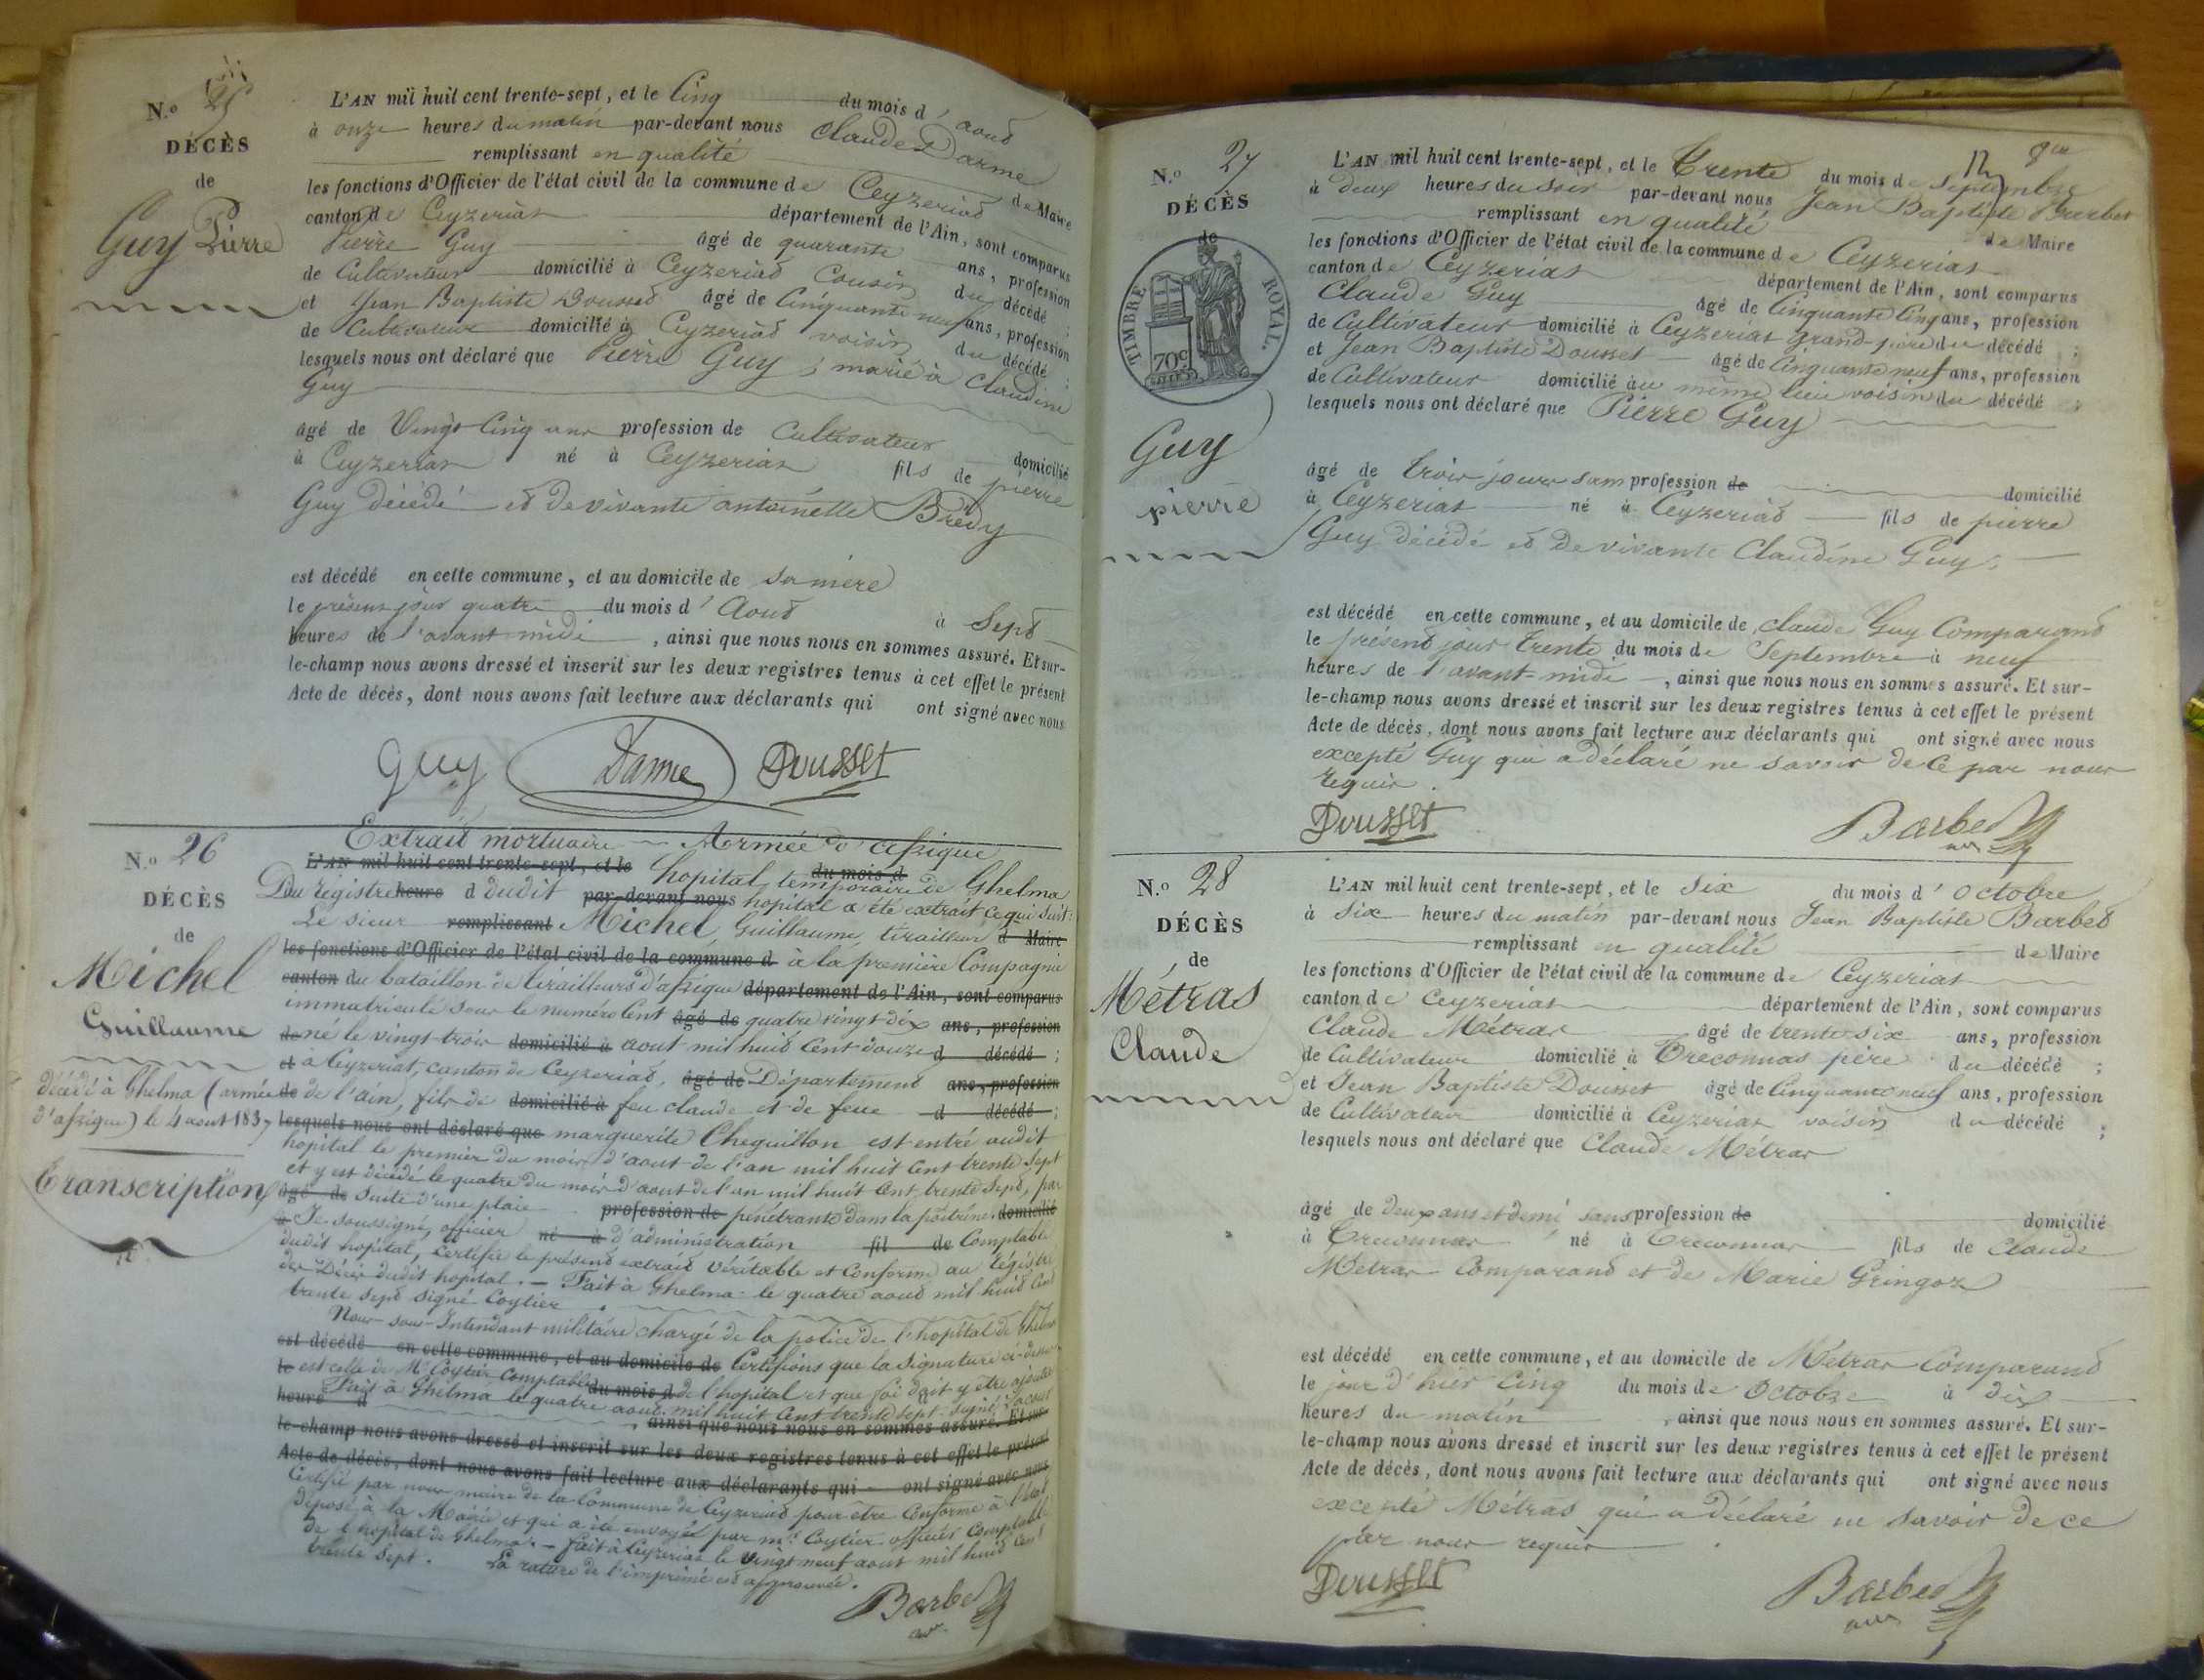 N.o 25
DÉCÈS
de
Guy Pierre
L'AN mil huit cent trente-sept, et le Cinq du mois d' aout
à onze heures du matin par-devant nous Claude Darme
remplissant en qualité de Maire
les fonctions d'Officier de l'état civil de la commune de Ceyzeriat
canton de Ceyzeriat département de l'Ain, sont comparus
Pierre Guy âgé de quarante ans, profession
de Cultivateur domicilié à Ceyzeriat Cousin du décédé ;
et Jean Baptiste Dousset âgé de Cinquante neuf ans, profession
de Cultivateur domicilié à Ceyzeriat voisin du décédé ;
lesquels nous ont déclaré que Pierre Guy, marié à Claudine
Guy
âgé de Vingt Cinq ans profession de Cultivateur domicilié
à Ceyzeriat né à Ceyzeriat fils de pierre
Guy décédé et de vivante antoinette Bredy
est décédé en cette commune, et au domicile de sa mère
le présent jour quatre du mois d' Aout à Sept
heures de l'avant midi, ainsi que nous nous en sommes assuré. Et sur-
le-champ nous avons dressé et inscrit sur les deux registres tenus à cet effet le présent
Acte de décès, dont nous avons fait lecture aux déclarants qui ont signé avec nous
Guy Darme Dousset
N.o 26
DÉCÈS
de
Michel
Guillaume
décédé à Ghelma (armée
d'afrique) le 4 aout 1837
transcription
Extrait mortuaire — Armée d'afrique
L'AN mil huit cent trente-sept, et le hopital temporaire de Ghelma du mois d
Du Registre heure d dudit par-devant nous hopital a été extrait ce qui suit :
Le sieur remplissant Michel, Guillaume, tirailleur d Maire
les fonctions d'Officier de l'état civil de la commune d à la première Compagnie
canton du bataillon de tirailleurs d'afrique département de l'Ain, sont comparus
immatriculé sous le numéro Cent âgé de quatre vingt dix ans, profession
de né le vingt trois domicilié à aout mil huit Cent douze d décédé ;
et a Ceyzeriat, canton de Ceyzeriat, âgé de Département ans, profession
de de l'ain, fils de domicilié à feu claude et de feue d décédé ;
lesquels nous ont déclaré que marguerite Cheguillon est entré audit
hopital le premier du mois d'aout de l'an mil huit Cent trente sept
et y est décédé le quatre du mois d'aout de l'an mil huit Cent trente Sept, par
âgé de suite d'une plaie profession de pénétrante dans la poitrine. domicilié
à Je soussigné, officier né à d'administration fil de Comptable
dudit hopital, certifie le présent extrait véritable et Conforme au régistre
des Décès dudit hopital. — Fait à Ghelma le quatre aout mil huit Cent
trente sept signé Coytier.
Nous sous-Intendant militaire chargé de la police de l'hopital de Ghelma
est décédé en cette commune, et au domicile de Certifions que la Signature ci-dessus
le est celle de Mr Coytier, Comptable du mois d de l'hopital et que foi doit y être ajoutée
heure d Fait à Ghelma le quatre aout mil huit Cent trente sept signé
, ainsi que nous nous en sommes assuré. Et sur-
le-champ nous avons dressé et inscrit sur les deux registres tenus à cet effet le présent
Acte de décès, dont nous avons fait lecture aux déclarants qui ont signé avec nous
Certifié par nous maire de la Commune de Ceyzeriat pour être Conforme à
déposé à la Mairie et qui a été envoyé par mr Coytier officier Comptable
de l'hopital de Ghelma. — fait à Ceyzeriat le vingt neuf aout mil huit Cent
trente Sept. La rature de l'imprimé est approuvée.
Barbet
N.o 27
DÉCÈS
de
TIMBRE ROYAL.
70c
Guy
pierre
L'AN mil huit cent trente-sept, et le trente du mois de Septembre
à deux heures du soir par-devant nous Jean Baptiste Barbet
remplissant en qualité de Maire
les fonctions d'Officier de l'état civil de la commune de Ceyzeriat
canton de Ceyzeriat département de l'Ain, sont comparus
Claude Guy âgé de Cinquante Cinq ans, profession
de Cultivateur domicilié à Ceyzeriat grand-père du décédé ;
et Jean Baptiste Dousset âgé de Cinquante neuf ans, profession
de Cultivateur domicilié au même lieu voisin du décédé ;
lesquels nous ont déclaré que Pierre Guy
âgé de trois jours sans profession de domicilié
à Ceyzeriat né à Ceyzeriat fils de pierre
Guy décédé et de vivante Claudine Guy,
est décédé en cette commune, et au domicile de claude Guy Comparant
le présent jour trente du mois de Septembre à neuf
heures de l'avant-midi, ainsi que nous nous en sommes assuré. Et sur-
le-champ nous avons dressé et inscrit sur les deux registres tenus à cet effet le présent
Acte de décès, dont nous avons fait lecture aux déclarants qui ont signé avec nous
excepté Guy qui a déclaré ne savoir de ce par nous
requis.
Dousset Barbet
N.o 28
DÉCÈS
de
Métras
Claude
L'AN mil huit cent trente-sept, et le Six du mois d' Octobre
à Six heures du matin par-devant nous Jean Baptiste Barbet
remplissant en qualité de Maire
les fonctions d'Officier de l'état civil de la commune de Ceyzeriat
canton de Ceyzeriat département de l'Ain, sont comparus
Claude Métras âgé de trente six ans, profession
de Cultivateur domicilié à Treconnas père du décédé ;
et Jean Baptiste Dousset âgé de Cinquante neuf ans, profession
de Cultivateur domicilié à Ceyzeriat voisin du décédé ;
lesquels nous ont déclaré que Claude Métras
âgé de deux ans et demi sans profession de domicilié
à Treconnas né à Treconnas fils de Claude
Métras Comparant et de Marie Gringoz
est décédé en cette commune, et au domicile de Métras Comparant
le jour d'hier Cinq du mois de Octobre à dix
heures du matin, ainsi que nous nous en sommes assuré. Et sur-
le-champ nous avons dressé et inscrit sur les deux registres tenus à cet effet le présent
Acte de décès, dont nous avons fait lecture aux déclarants qui ont signé avec nous
excepté Métras qui a déclaré ne savoir de ce
par nous requis.
Dousset Barbet